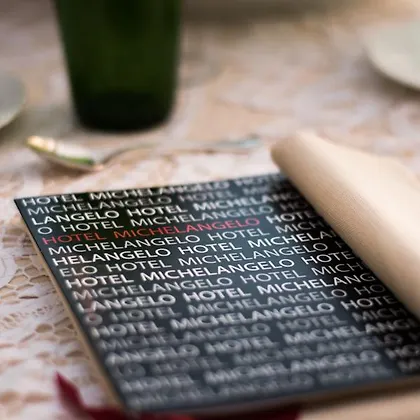 HOTEL MICHELANGELO
MICHELANGELO HOTEL
LANGELO HOTEL MICHELANGELO
O HOTEL MICHELANGELO HOTEL
HOTEL MICHELANGELO HOTEL
MICHELANGELO HOTEL MICHEL
HELANGELO HOTEL MICHELANG
ELO HOTEL MICHELANGELO HOTE
HOTEL MICHELANGELO HOTEL
MICHELANGELO HOTEL MICHEL
LANGELO HOTEL MICHELANGELO
HOTEL MICHELANGELO HOTE
HOTEL MICHELANGELO HOTEL
MICHELANGELO HOTEL MICHELAN
ANGELO HOTEL MICHELANGELO
HOTEL MICHELANGELO
HOTEL MICHELANGELO HOTEL